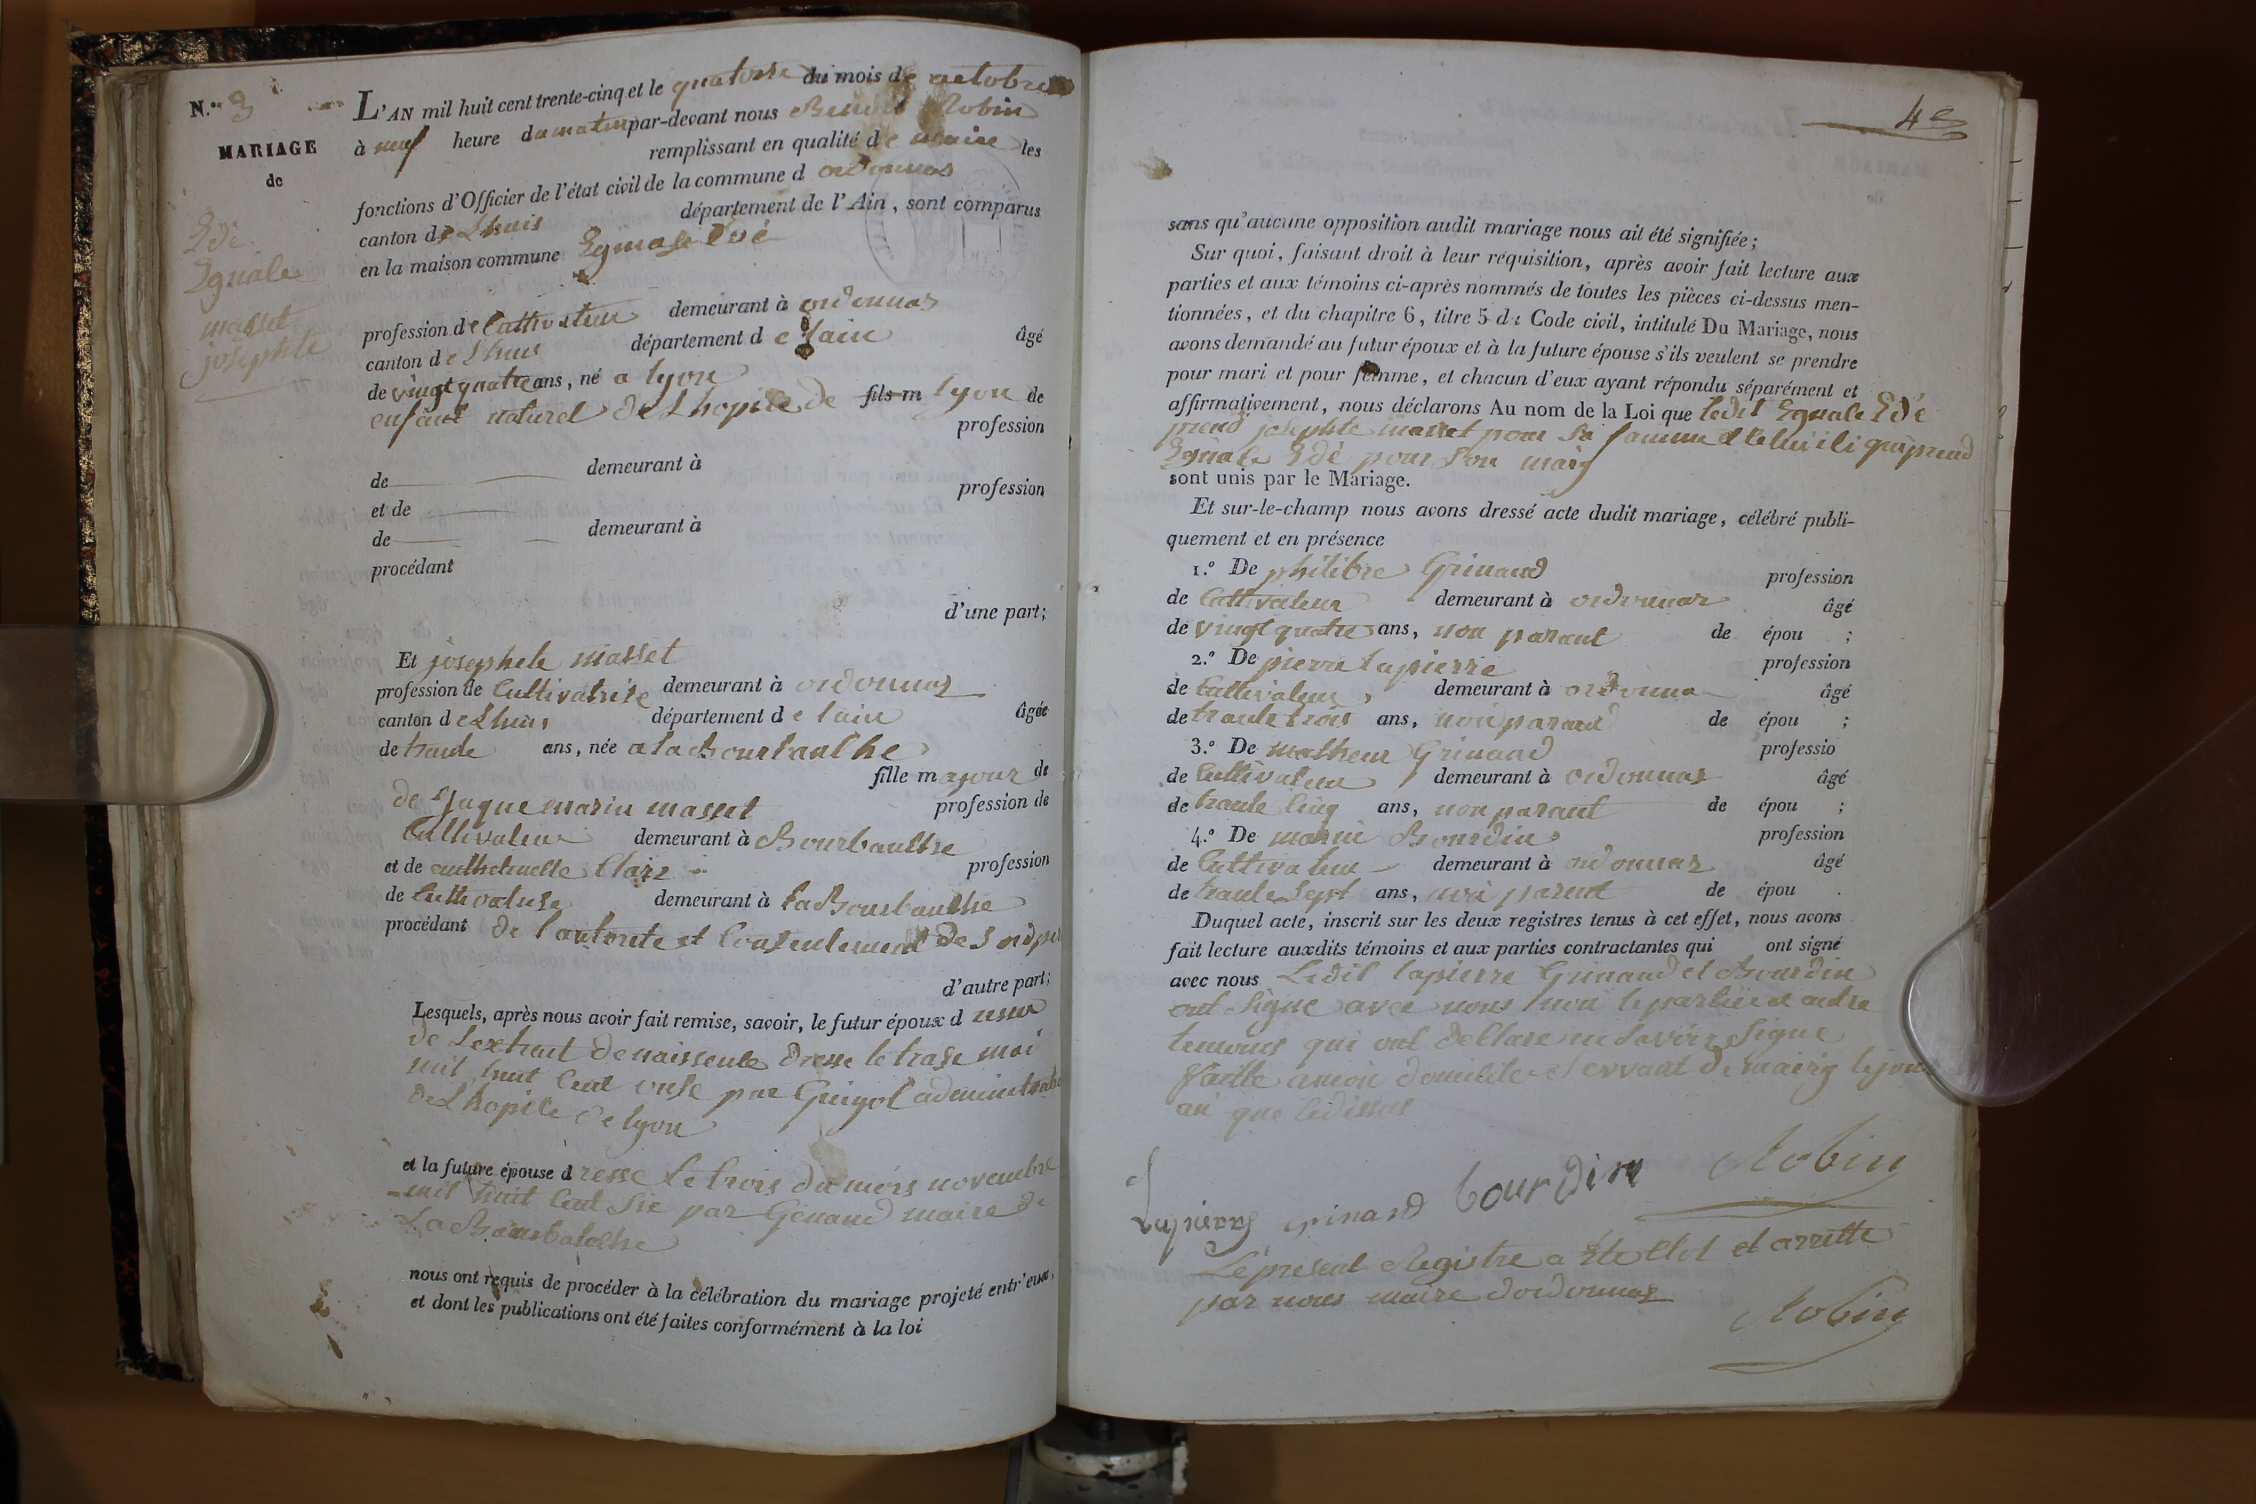 N.º 3
MARIAGE
de
Edé
Egnale
masset
josephte
L'AN mil huit cent trente-cinq et le quatorse du mois de octobre
à neuf heure du matin par-devant nous Benoit Robin
remplissant en qualité de maire les
fonctions d'Officier de l'état civil de la commune d ordonnas
canton de Lhuis département de l'Ain, sont comparus
en la maison commune Egnale Edé
profession de Cultivateur demeurant à ordonnas
canton de Lhuis département de lain âgé
de vingt quatre ans, né a lyon
enfant naturel de Lhopile de fils m lyon de
profession
de demeurant à
et de profession
de demeurant à
procédant
d'une part;
Et josephete masset
profession de Cultivatrise demeurant à ordonnas
canton de Lhuis département de lain âgée
de trante ans, née a la Bourbanche
fille m ajour de
de Jaque marin masset profession de
Cultivateur demeurant à Bourbanche
et de Clair profession
de demeurant à la Bourbanche
procédant de l'autorite et Contentement de
d'autre part;
Lesquels, après nous avoir fait remise, savoir, le futur époux d
de Lextrait de naissente dresse le trase mai
mil huit Cent onse par Guigot
de Lhopile de lyon
et la future épouse dresse Le trois du mois novembre
mil huit Cent Sie par Genaud maire de
La
nous ont requis de procéder à la célébration du mariage projeté entr'eux,
et dont les publications ont été faites conformément à la loi
4
sans qu'aucune opposition audit mariage nous ait été signifiée;
Sur quoi, faisant droit à leur réquisition, après avoir fait lecture aux
parties et aux témoins ci-après nommés de toutes les pièces ci-dessus men-
tionnées, et du chapitre 6, titre 5 du Code civil, intitulé Du Mariage, nous
avons demandé au futur époux et à la future épouse s'ils veulent se prendre
pour mari et pour femme, et chacun d'eux ayant répondu séparément et
affirmativement, nous déclarons Au nom de la Loi que ledit Egnale Edé
prend josephte masset pour Sa famme et qui prend
Egnale Edé pour Son mary
sont unis par le Mariage.
Et sur-le-champ nous avons dressé acte dudit mariage, célébré publi-
quement et en présence
1.º De philibre Grinand profession
de Cultivateur demeurant à ordonnas âgé
de vingt quatre ans, non parant de épou ;
2.º De pierre lapierre profession
de Cultivateur demeurant à ordonna âgé
de trante trois ans, non parant de épou ;
3.º De matheur Grinand professio
de Cultivateur demeurant à ordonnas âgé
de trante Cinq ans, non parant de épou ;
4.º De marin Bourdin profession
de Cultivateur demeurant à ordonnas âgé
de trante Sept ans, non parent de épou .
Duquel acte, inscrit sur les deux registres tenus à cet effet, nous avons
fait lecture auxdits témoins et aux parties contractantes qui ont signé
avec nous Ledit lapierre Grinand et Bourdin
ont Signe avec nous non le partie et autre
temoins qui ont dellare ne Savoir Signe
faitte amon domicile Servant de mairy le jour
an que
Lapierre grinand bourdin Robin
Le present Registre a Ete Clot et arrette
par nous maire dordonnas
Robin